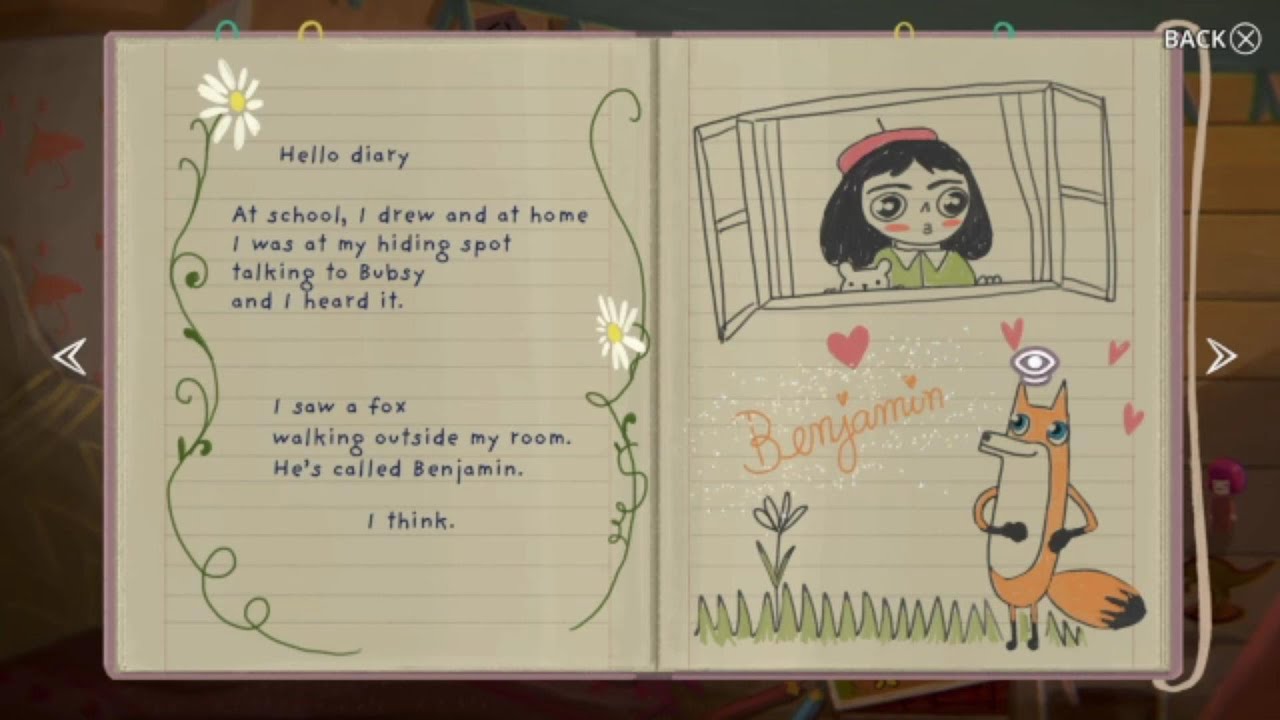 BACK
Hello diary
At school, I drew and at home
I was at my hiding spot
talking to Bubsy
and I heard it.
I saw a fox
walking outside my room.
He's called Benjamin.
I think.
Benjamin